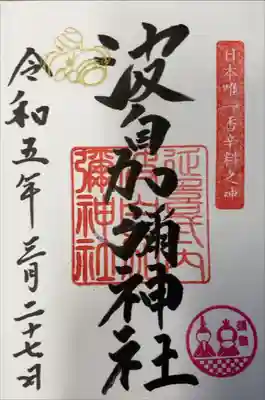 日本唯一香辛料之神
波自加彌神社
延喜式内
彌神社
令和五年三月二十七日